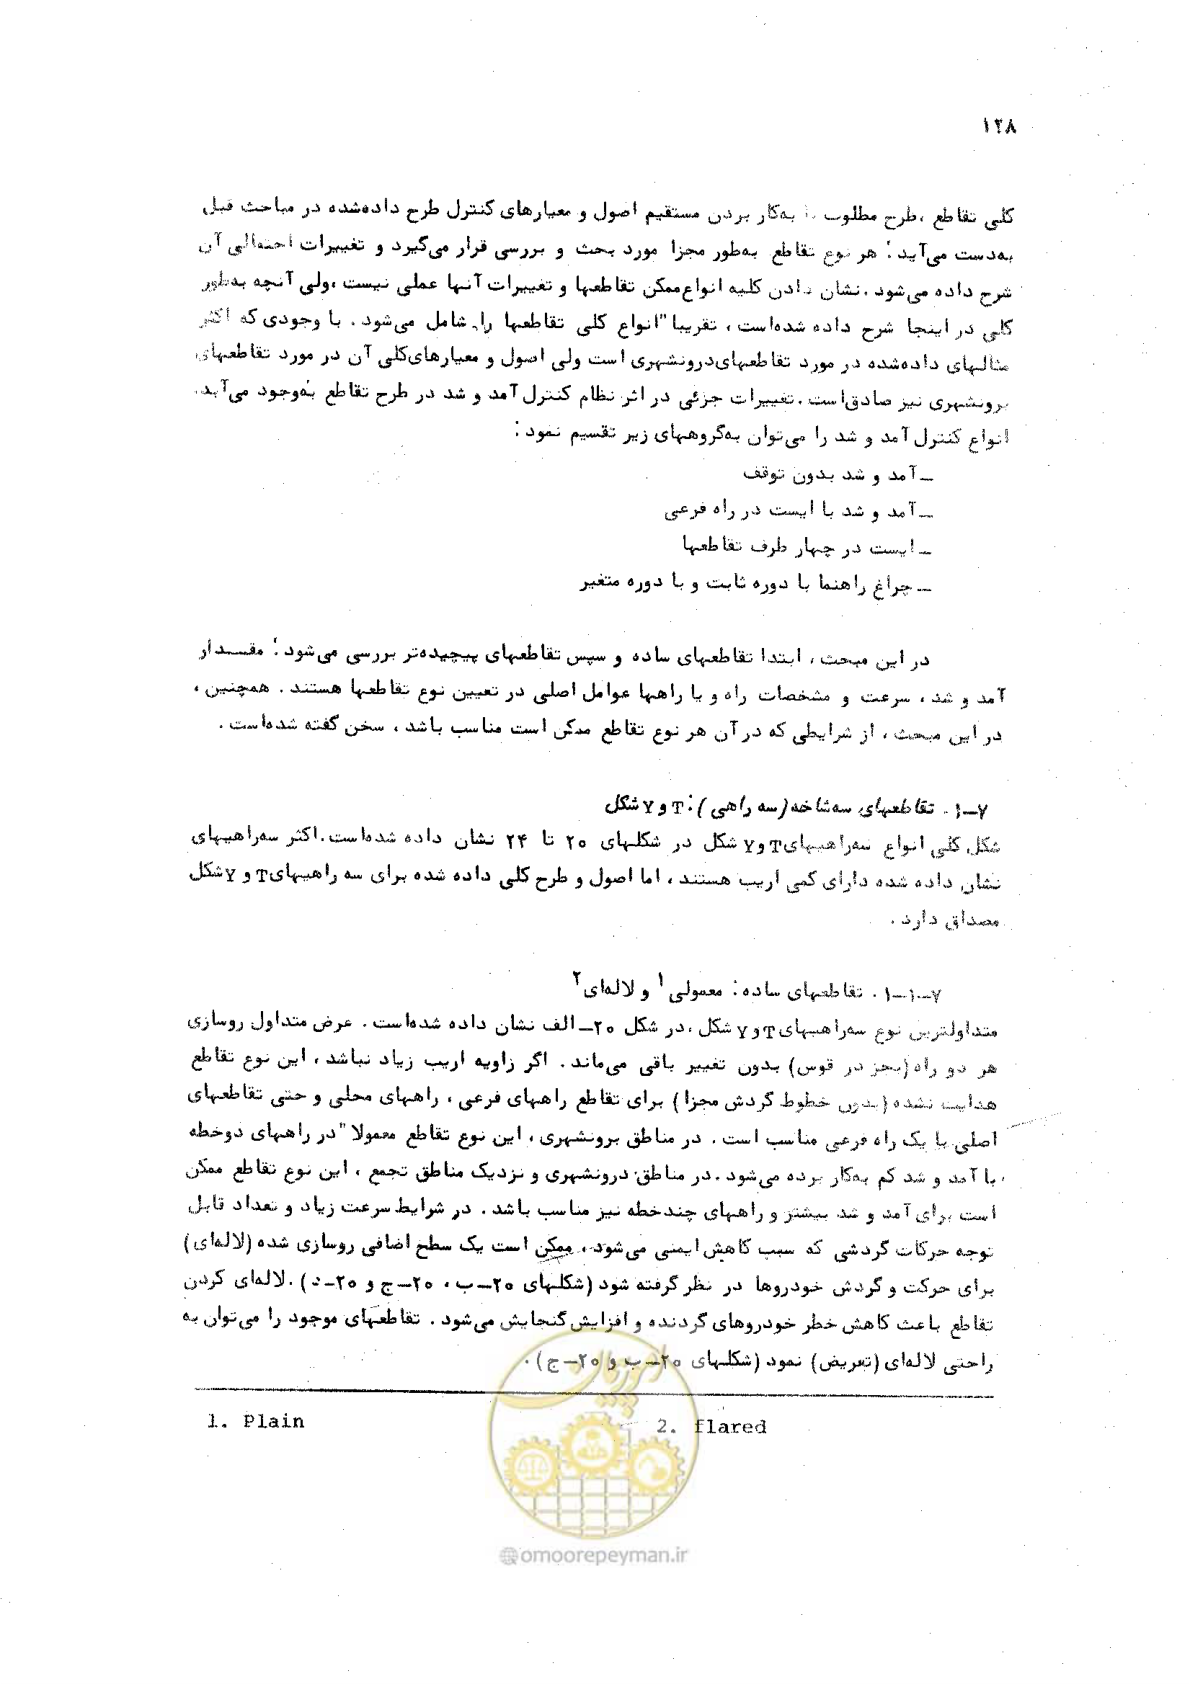 ۱۲۸
کلی تقاطع ، طرح مطلوب با به‌کار بردن مستقیم اصول و معیارهای کنترل طرح داده‌شده در مباحث قبل
به‌دست می‌آید؛ هر نوع تقاطع به‌طور مجزا مورد بحث و بررسی قرار می‌گیرد و تغییرات احتمالی آن
شرح داده می‌شود . نشان دادن کلیه انواع ممکن تقاطعها و تغییرات آنها عملی نیست ، ولی آنچه به‌طور
کلی در اینجا شرح داده شده‌است ، تقریبا" انواع کلی تقاطعها را شامل می‌شود . با وجودی که اکثر
مثالهای داده‌شده در مورد تقاطعهای درونشهری است ولی اصول و معیارهای کلی آن در مورد تقاطعهای
برونشهری نیز صادق‌است . تغییرات جزئی در اثر نظام کنترل آمد و شد در طرح تقاطع به‌وجود می‌آید.
انواع کنترل آمد و شد را می‌توان به‌گروههای زیر تقسیم نمود :
ــ آمد و شد بدون توقف
ــ آمد و شد با ایست در راه فرعی
ــ ایست در چهار طرف تقاطعها
ــ چراغ راهنما با دوره ثابت و با دوره متغیر
در این مبحث ، ابتدا تقاطعهای ساده و سپس تقاطعهای پیچیده‌تر بررسی می‌شود ؛ مقـــدار
آمد و شد ، سرعت و مشخصات راه و یا راهها عوامل اصلی در تعیین نوع تقاطعها هستند . همچنین ،
در این مبحث ، از شرایطی که در آن هر نوع تقاطع ممکن است مناسب باشد ، سخن گفته شده‌است .
۷ــ۱ . تقاطعهای سه‌شاخه (سه راهی) : T و Y شکل
شکل کلی انواع سه‌راهیهای T و Y شکل در شکلهای ۲۰ تا ۲۴ نشان داده شده‌است . اکثر سه‌راهیهای
نشان داده شده دارای کمی اریب هستند ، اما اصول و طرح کلی داده شده برای سه راهیهای T و Y شکل
مصداق دارد .
۷ــ۱ــ۱ . تقاطعهای ساده : معمولی۱ و لاله‌ای۲
متداولترین نوع سه‌راهیهای T و Y شکل ، در شکل ۲۰ــ الف نشان داده شده‌است . عرض متداول روسازی
هر دو راه (بجز در قوس) بدون تغییر باقی می‌ماند . اگر زاویه اریب زیاد نباشد ، این نوع تقاطع
هدایت نشده (بدون خطوط گردش مجزا) برای تقاطع راههای فرعی ، راههای محلی و حتی تقاطعهای
اصلی با یک راه فرعی مناسب است . در مناطق برونشهری ، این نوع تقاطع معمولا" در راههای دوخطه
با آمد و شد کم به‌کار برده می‌شود . در مناطق درونشهری و نزدیک مناطق تجمع ، این نوع تقاطع ممکن
است برای آمد و شد بیشتر و راههای چندخطه نیز مناسب باشد . در شرایط سرعت زیاد و تعداد قابل
توجه حرکات گردشی که سبب کاهش ایمنی می‌شود ، ممکن است یک سطح اضافی روسازی شده (لاله‌ای)
برای حرکت و گردش خودروها در نظر گرفته شود (شکلهای ۲۰ــ ب ، ۲۰ــ ج و ۲۰ــ د) . لاله‌ای کردن
تقاطع باعث کاهش خطر خودروهای گردنده و افزایش گنجایش می‌شود . تقاطعهای موجود را می‌توان به
راحتی لاله‌ای (تعریض) نمود (شکلهای ۲۰ــ ب و ۲۰ــ ج) .
1. Plain 2. flared
امور پیمان
@omoorepeyman.ir